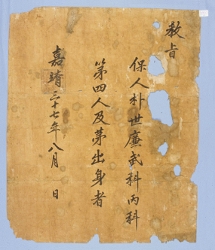 教旨
保人朴世廉武科丙科
第四人及第出身者
嘉靖三十七年八月 日